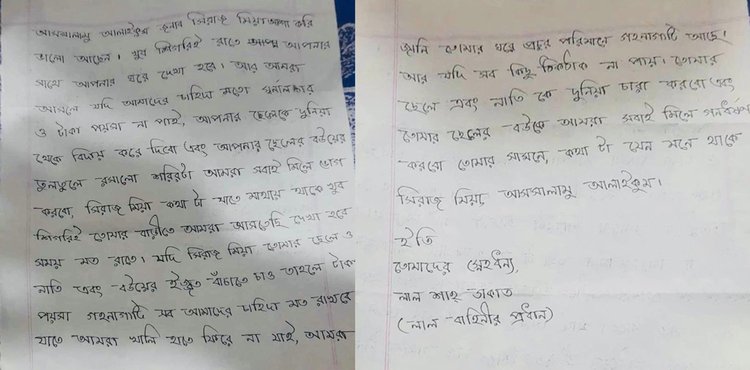 আসসালামু আলাইকুম জনাব সিরাজ মিয়া আশা করি
ভালো আছেন। খুব শিগরিই রাতে আপনার
সাথে আপনার ঘরে দেখা হবে। আর আমরা
আসলে যদি আমাদের চাহিদা মতো
ও টাকা পয়সা না পাই, আপনার ছেলেকে দুনিয়া
থেকে বিদায় করে দিবো এবং আপনার ছেলের বউয়ের
তুলতুলে রসালো শরিরটা আমরা সবাই মিলে ভোগ
করবো, সিরাজ মিয়া কথা টা যাতে মাথায় থাকে খুব
শিগরিই তোমার বাড়ীতে আমরা আসতেছি দেখা হবে
সময় মত রাতে। যদি সিরাজ মিয়া তোমার ছেলে ও
নাতি এবং বউয়ের ইজ্জত বাঁচাতে চাও তাহলে টাকা
পয়সা গহনাগাটি সব আমাদের চাহিদা মত রাখবে
যাতে আমরা খালি হাতে ফিরে না যাই, আমরা
জানি তোমার ঘরে প্রচুর পরিমানে গহনাগাটি আছে।
আর যদি সব কিছু ঠিকঠাক না পায়। তোমার
ছেলে এবং নাতি কে দুনিয়া ছাড়া করবো এবং
তোমার ছেলের বউকে আমরা সবাই মিলে গনধর্ষণ
করবো তোমার সামনে, কথা টা যেন মনে থাকে
সিরাজ মিয়া, আসসালামু আলাইকুম।
ইতি
তোমাদের স্নেহধন্য,
লাল শাহ্ ডাকাত
(লাল বাহিনীর প্রধান)